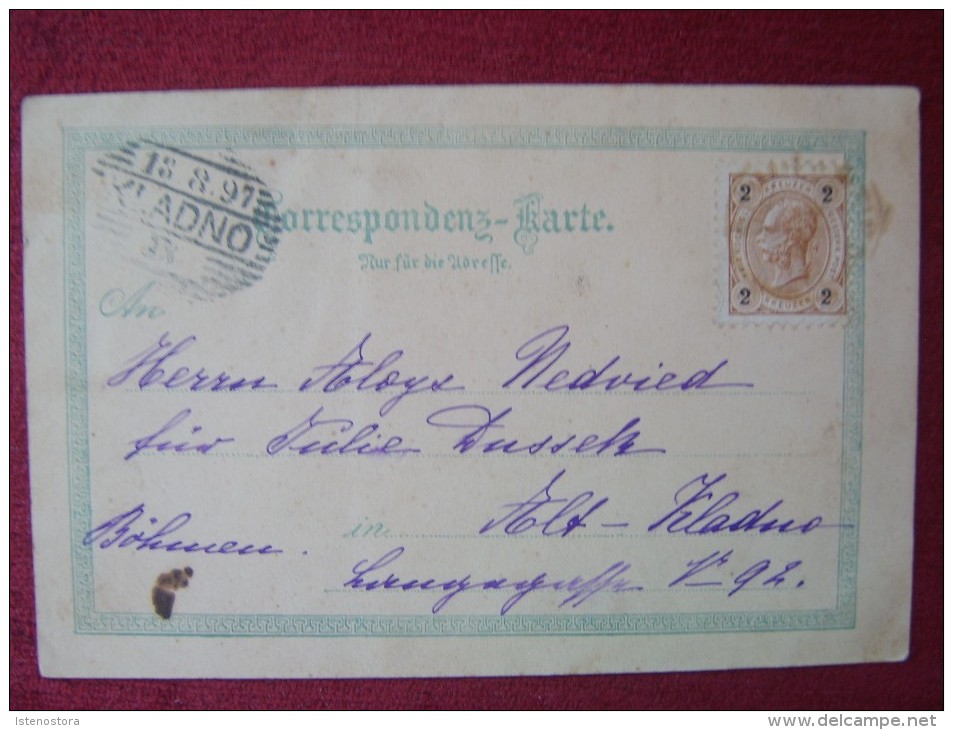 13 8.97
KLADNO
Correspondenz-Karte.
Nur für die Adresse.
2 KREUZER 2
2 KREUZER 2
An
Herrn Aloys Nedvied
für Julie Dussek
in Alt-Kladno
Böhmen.
Langegasse Nr 92.
Istenostora
www.delcampe.net